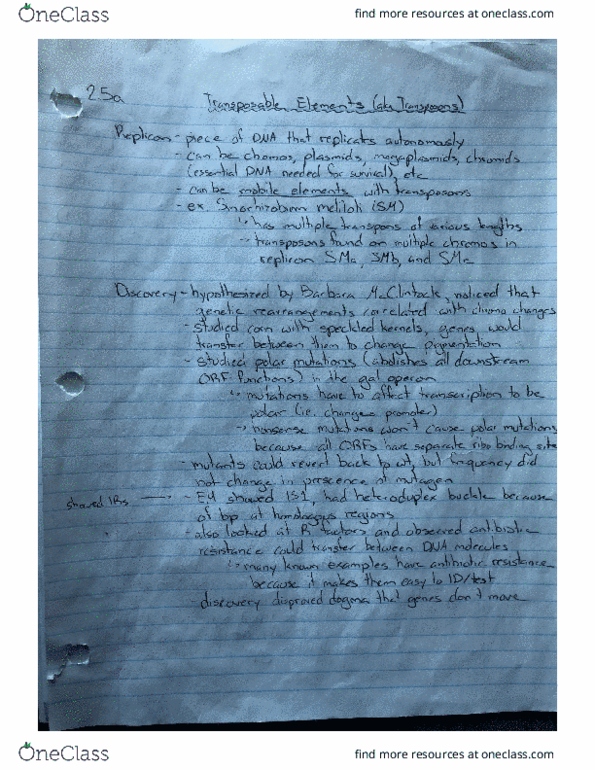 OneClass
find more resources at oneclass.com
25a
Transposable Elements (aka Transposons)
Replicon - piece of DNA that replicates autonomously
- can be chomos, plasmids, megaplasmids, chromids
(essential DNA needed for survival), etc
- can be mobile elements with transposons
- ex. Sinorhizobium meliloti (SM)
↳ has multiple transpons of various lengths
↳ transposons found on multiple chromos in
replicon SMa, SMb, and SMc
Discovery - hypothesized by Barbara McClintock, noticed that
genetic rearrangements correlated with chromo changes
- studied corn with speckled kernels, genes would
transfer between them to change pigmentation
- studied polar mutations (abolishes all downstream
ORF functions) in the gal operon
↳ mutations have to affect transcription to be
polar (ie. change promoter)
↳ nonsense mutations won't cause polar mutations
because all ORFs have separate ribo binding site
- mutants could revert back to wt, but frequency did
not change in perscence of mutagen
shared IRs → - EM showed IS1, had heteroduplex buckle because
of bp at homologous regions
- also looked at R factors and observed antibiotic
resistance could transfer between DNA molecules
↳ many known examples have antibiotic resistance
because it makes them easy to ID/test
- discovery disproved dogma that genes don't move
OneClass
find more resources at oneclass.com